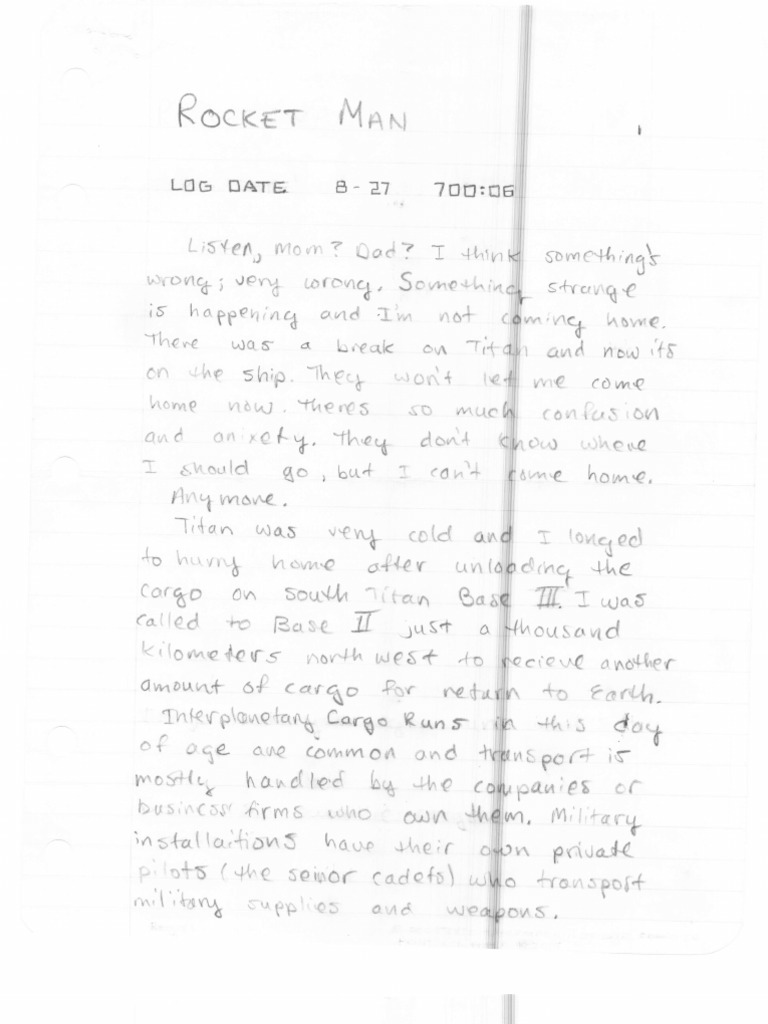 ROCKET MAN
1
LOG DATE 8-27 700:06
Listen, Mom? Dad? I think something's
wrong; very wrong. Something strange
is happening and I'm not coming home.
There was a break on Titan and now its
on the ship. They won't let me come
home now. Theres so much confusion
and anixety. They don't know where
I should go, but I can't come home.
Anymore.
Titan was very cold and I longed
to hurry home after unloading the
cargo on south Titan Base III. I was
called to Base II just a thousand
kilometers north west to recieve another
amount of cargo for return to Earth.
Interplanetary Cargo Runs in this day
of age are common and transport is
mostly handled by the companies or
business firms who own them. Military
installaitions have their own private
pilots (the seinor cadets) who transport
military supplies and weapons.